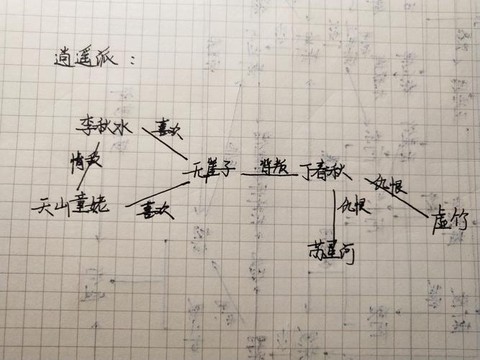 逍遥派：
李秋水 喜欢
情敌 无崖子 背叛 丁春秋 仇恨
天山童姥 喜欢 仇恨 虚竹
苏星河